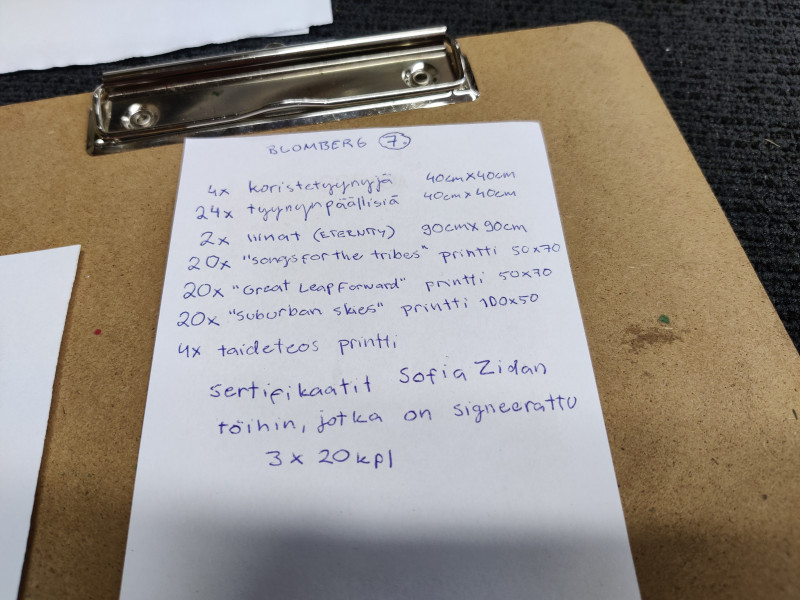 BLOMBERG 7.
4x koristetyynyjä 40cmX40cm
24x tyynynpäällisiä 40cmX40cm
2x liinat (ETERNITY) 90cmX90cm
20x "Songs for the tribes" printti 50x70
20x "Great Leap Forward" printti 50x70
20x "Suburban skies" printti 100x50
4x taideteos printti
sertifikaatit Sofia Zidan
töihin, jotka on signeerattu
3 x 20 kpl